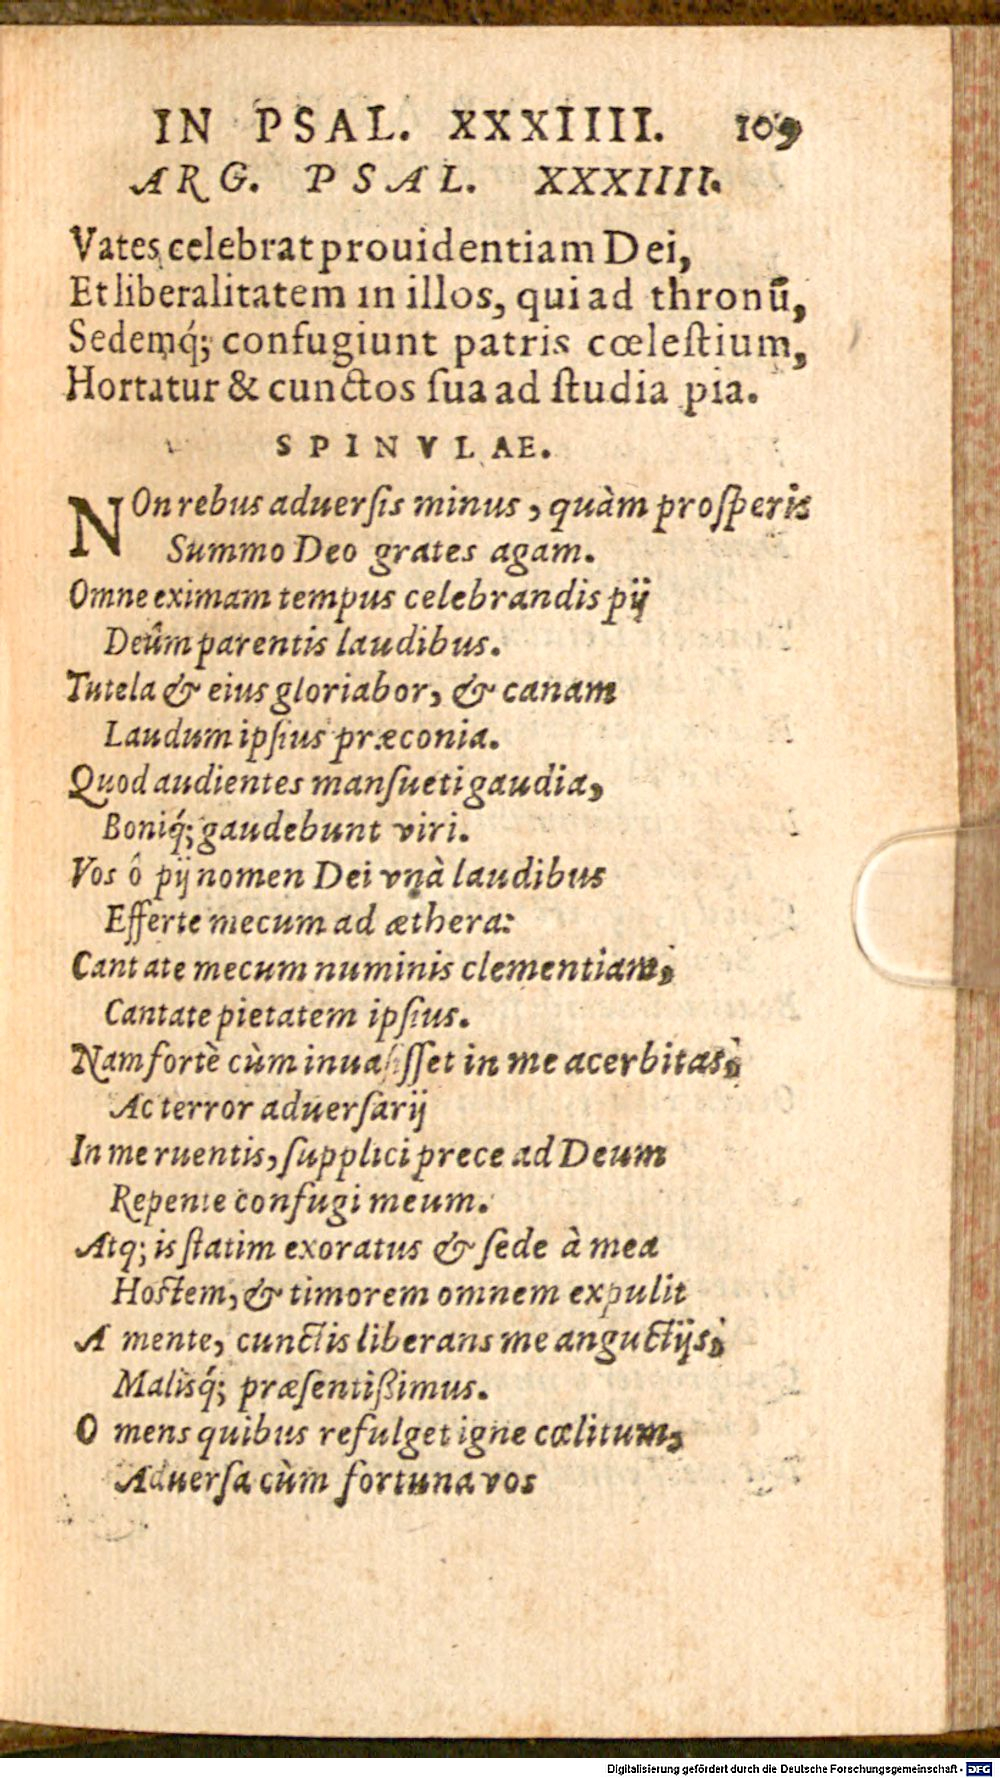 IN PSAL. XXXIIII. 109
ARG. PSAL. XXXIIII.
Vates celebrat prouidentiam Dei,
Et liberalitatem in illos, qui ad thronū,
Sedemq́; confugiunt patris cœleſtium,
Hortatur & cunctos ſua ad ſtudia pia.
SPINVLAE.
NOn rebus aduerſis minus, quàm proſperis
Summo Deo grates agam.
Omne eximam tempus celebrandis pij
Deûm parentis laudibus.
Tutela & eius gloriabor, & canam
Laudum ipſius præconia.
Quod audientes manſueti gaudia,
Boniq́; gaudebunt viri.
Vos ô pij nomen Dei vnà laudibus
Efferte mecum ad æthera:
Cantate mecum numinis clementiam,
Cantate pietatem ipſius.
Nam fortè cùm inuaſiſſet in me acerbitas,
Ac terror aduerſarij
In me ruentis, ſupplici prece ad Deum
Repente confugi meum.
Atq; is ſtatim exoratus & ſede à mea
Hoſtem, & timorem omnem expulit
A mente, cunctis liberans me anguctijs,
Malisq́; præſentißimus.
O mens quibus refulget igne cœlitum,
Aduerſa cùm fortuna vos
Digitalisierung gefördert durch die Deutsche Forschungsgemeinschaft - DFG